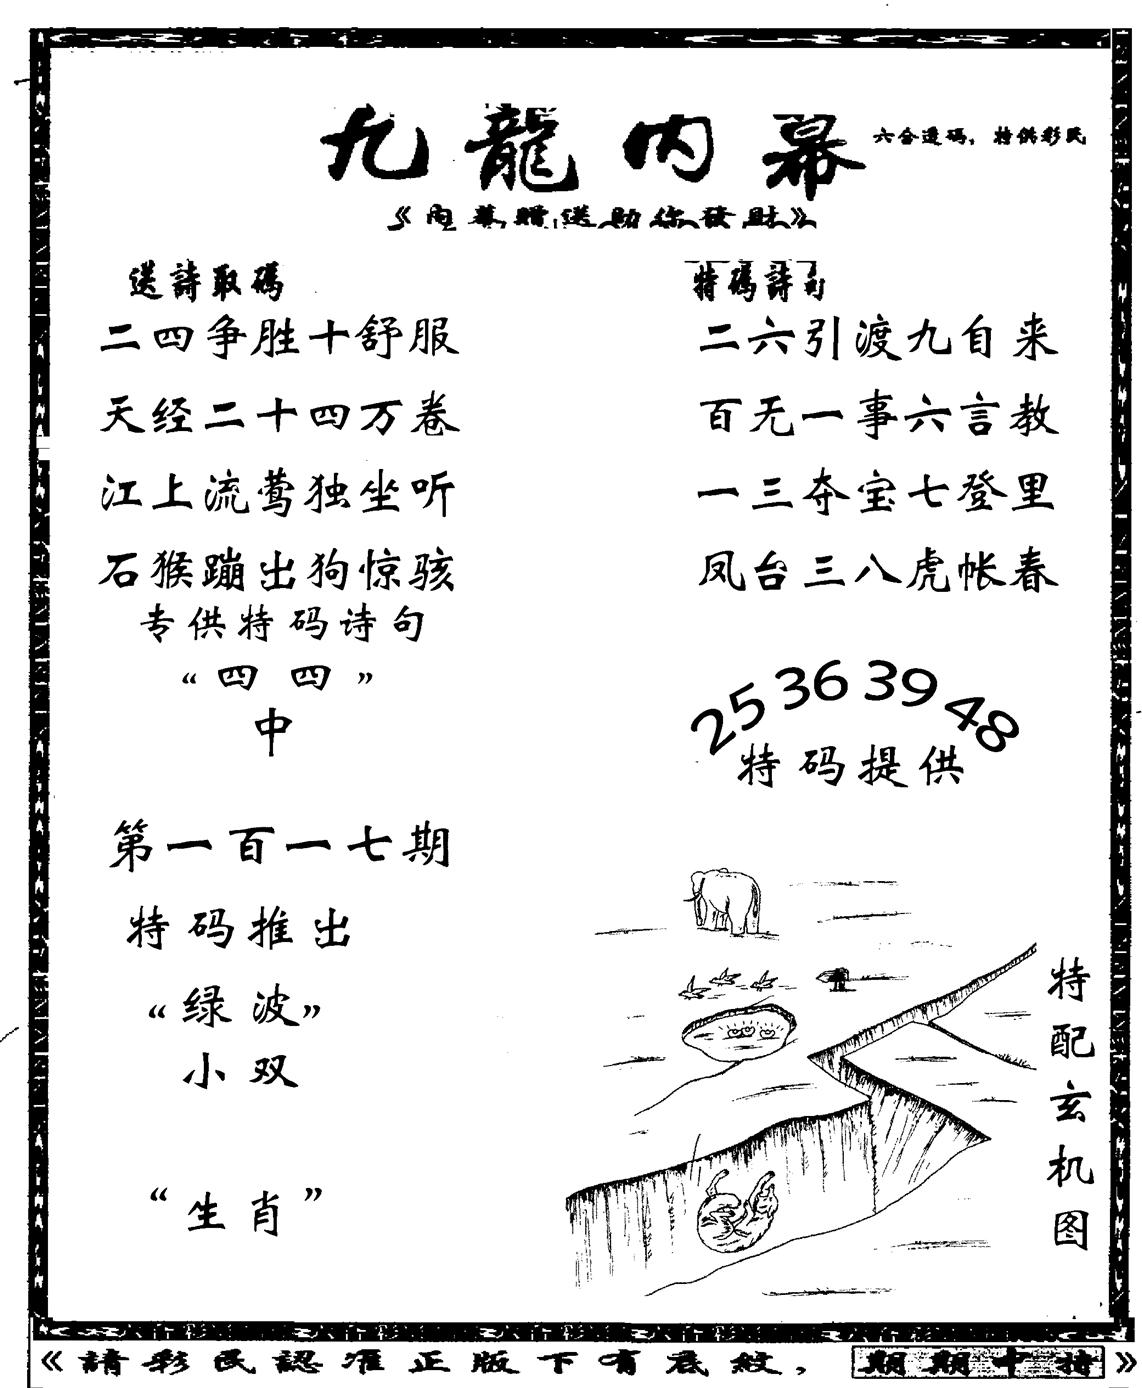 九龍内幕
六合透碼，特供彩民
《内幕贈送助你發財》
送詩取碼
二四争胜十舒服
天经二十四万卷
江上流莺独坐听
石猴蹦出狗惊骇
专供特码诗句
“四四”
中
第一百一七期
特码推出
“绿波”
小双
“生肖”
特碼詩句
二六引渡九自来
百无一事六言教
一三夺宝七登里
凤台三八虎帐春
25 36 39 48
特码提供
特配玄机图
《請彩民認准正版下有底紋，期期中特》